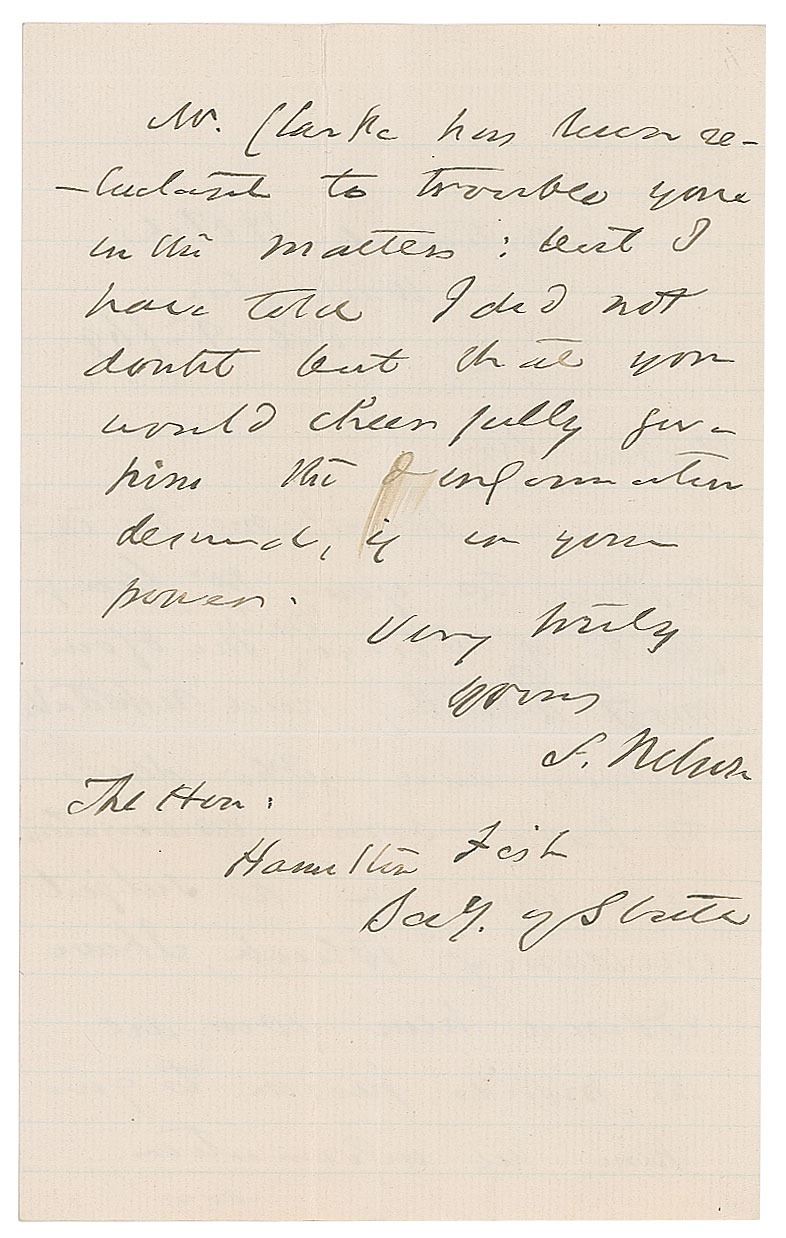 Mr. Clarke has been re-
-luctant to trouble you
in the matter; but I
have told I did not
doubt but that you
would cheerfully give
him the information
desired, if in your
power.
Very truly
yours
S. Nelson
The Hon:
Hamilton Fish
Secy. of State